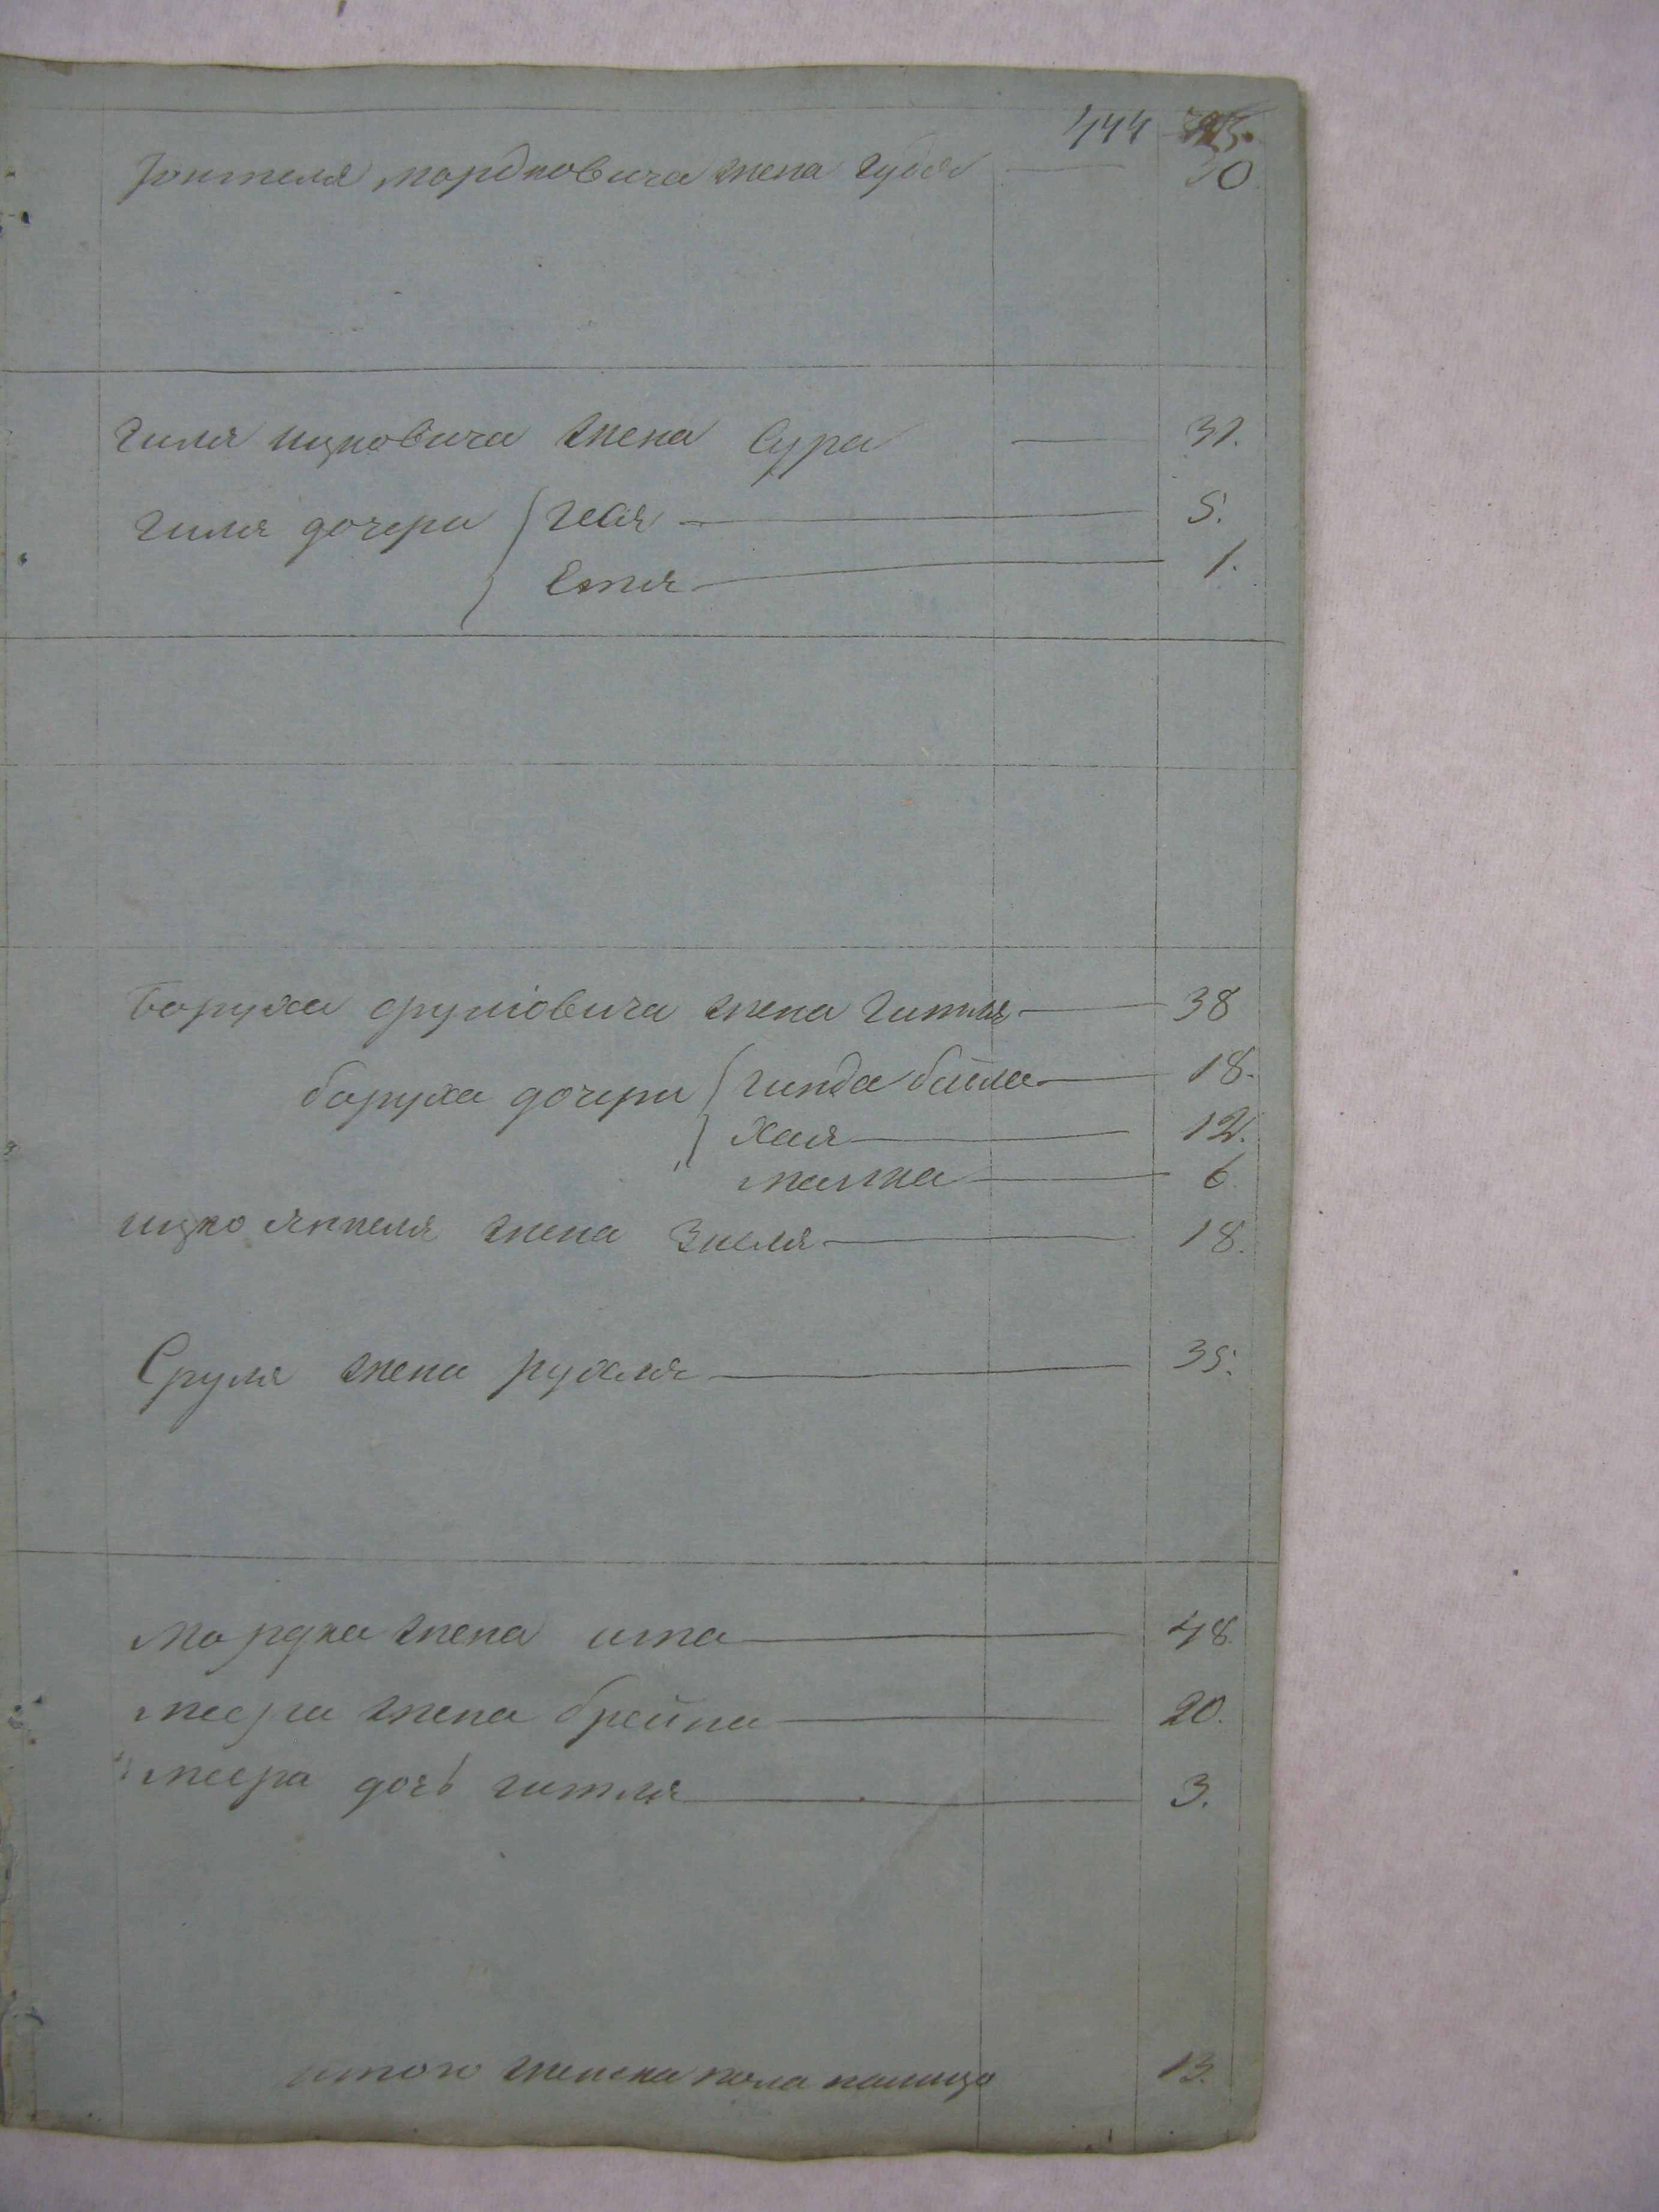 444
мордковича жена
30
Гиля ицковича жена Сура — 31.
Гиля дочери Геся — 5.
Етля — 1.
Боруха срулiовича жена Гитля — 38
боруха дочери гинда бейла — 18.
Хая — 12.
малка — 6.
ицко Янкеля жена Знеля — 18.
Сруля жена рухля — 35.
Мордка жена ита — 48.
меера жена брейна — 20.
меера дочь гитля — 3.
итого женска пола налицо 13.